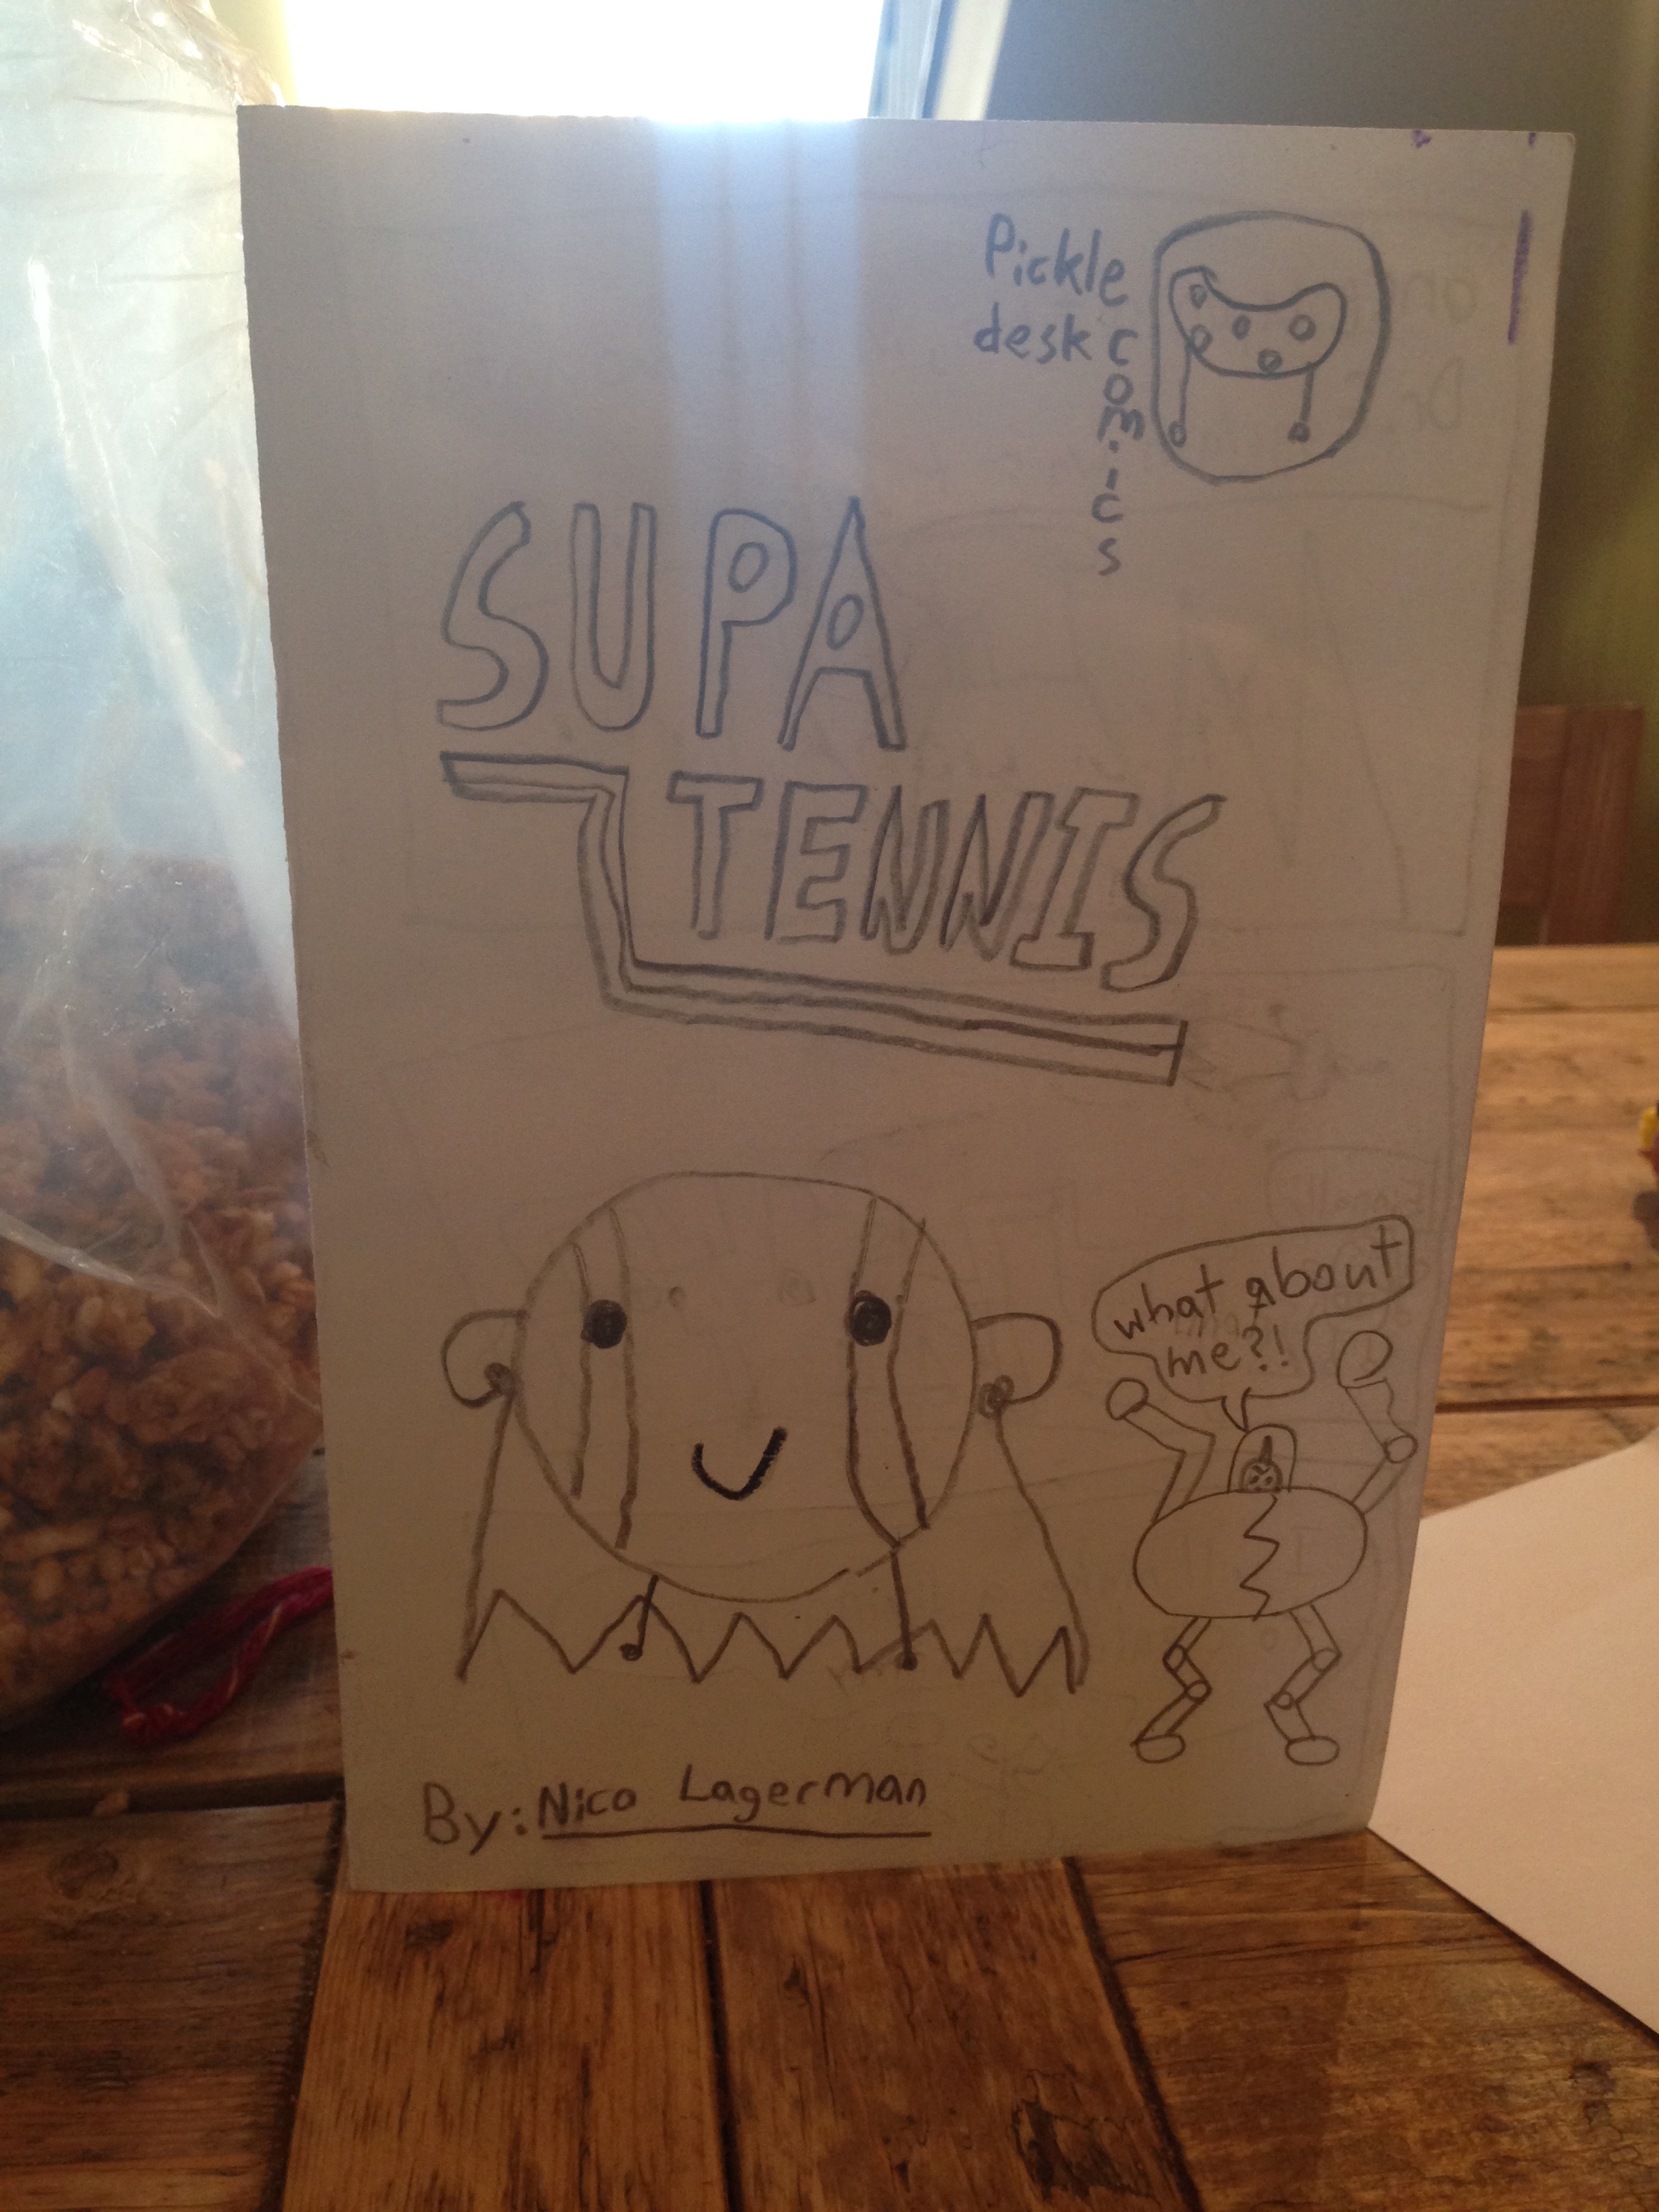 Pickle
desk comics
SUPA
TENNIS
what about
me?!
By: Nico Lagerman